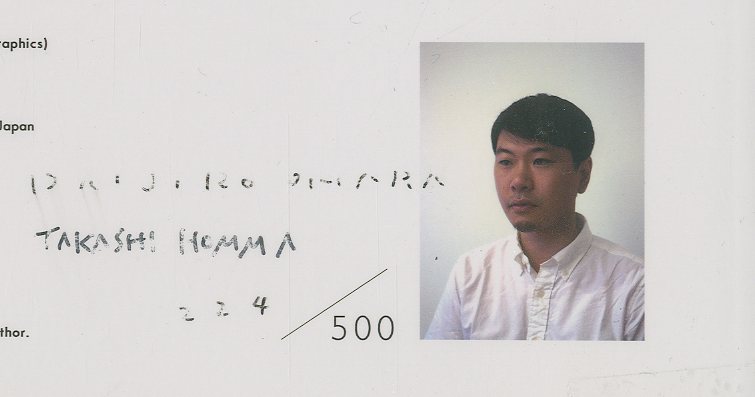 raphics)
Japan
DAIJIRO OHARA
TAKASHI HOMMA
224/500
thor.